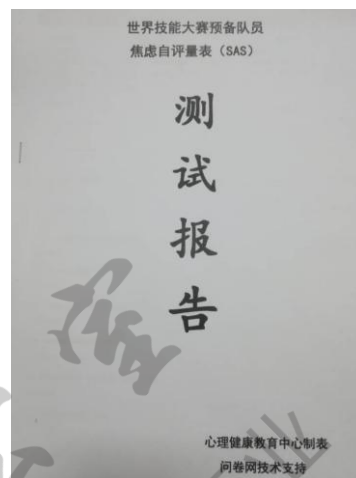 世界技能大赛预备队员
焦虑自评量表（SAS）
测
试
报
告
心理健康教育中心制表
问卷网技术支持